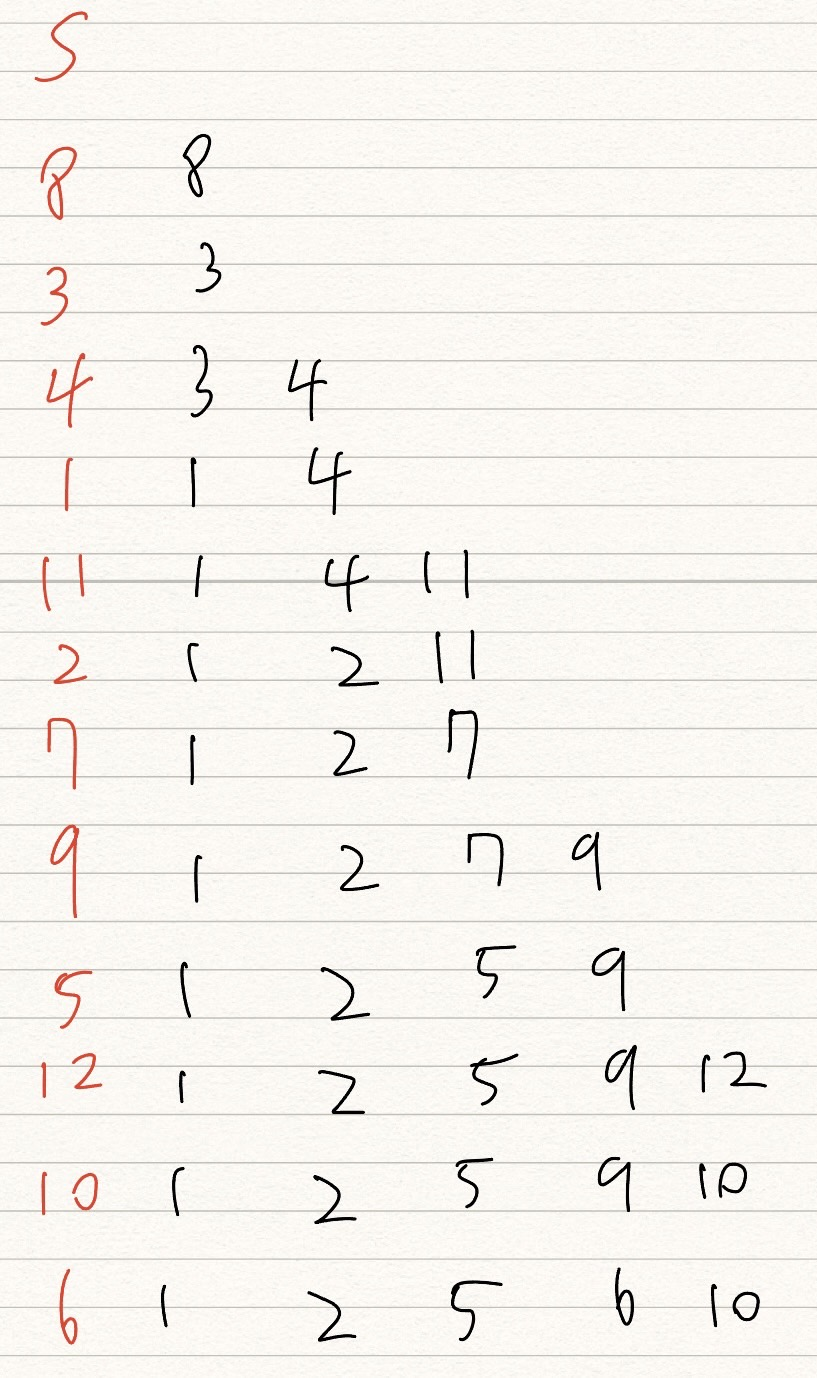 S
8 8
3 3
4 3 4
1 1 4
11 1 4 11
2 1 2 11
7 1 2 7
9 1 2 7 9
5 1 2 5 9
12 1 2 5 9 12
10 1 2 5 9 10
6 1 2 5 6 10